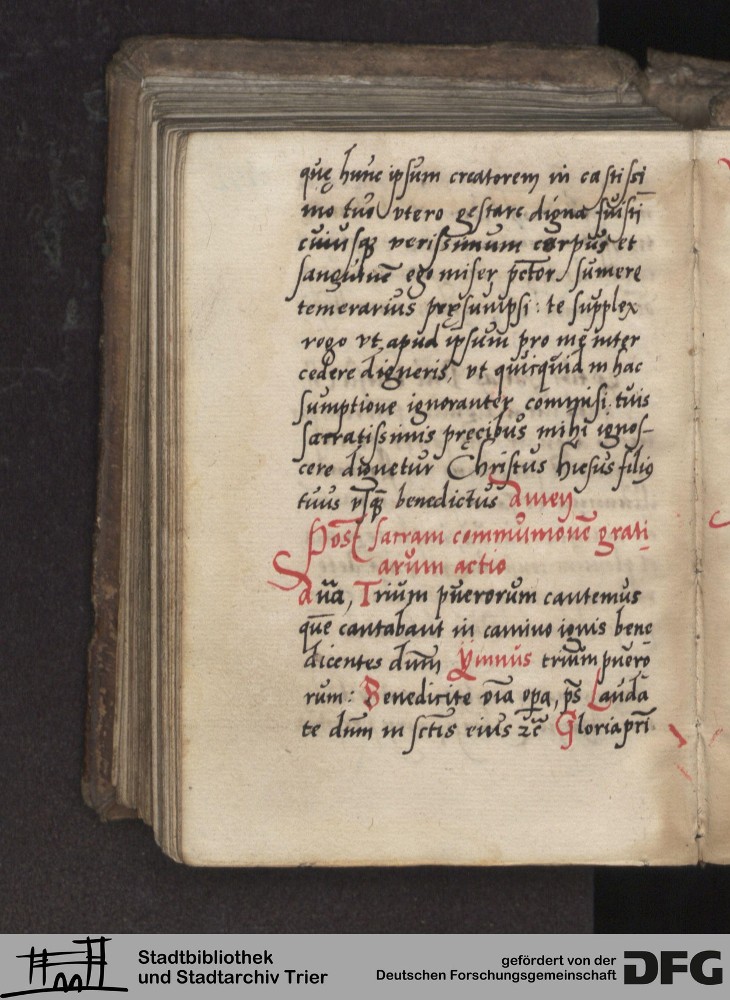 quę hunc ipsum creatorem in castissi
mo tuo vtero gestare digna fuisti
cuiusq; verissimum corpus et
sanguinē ego miser pc̄tor sumere
temerarius pręsumpsi: te supplex
rogo vt apud ip̄sum pro me inter
cedere digneris, vt quicquid in hac
sumptione ignoranter commisi tuis
sacratissimis pręcibus mihi ignos-
cere dignetur Christus hiesus filiꝯ
tuus benedictus Amen
Post sacram communionē grati
arum actio
Añа, Trium puerorum cantemus
quē cantabant in camino ignis bene
dicentes dn̄m Ymnus trium puero
rum: Benedicite oīa opa, ps̄ Lauda
te dn̄m in sctīs eius ꝛc̄ Gloria pr̄i
Stadtbibliothek
und Stadtarchiv Trier
gefördert von der
Deutschen Forschungsgemeinschaft
DFG